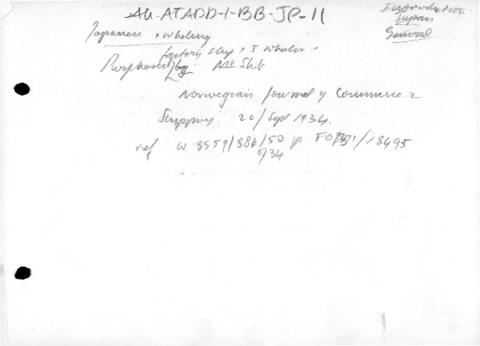 AU-ATADD-1-BB-JP-11
Introduction
Japan
General
Japanese whaling
factory ship, 5 whalers
Purchased by
Norwegian Journal of Commerce &
Shipping 20/Sept 1934.
ref W 8559/886/50 p FO 371/18495
/34